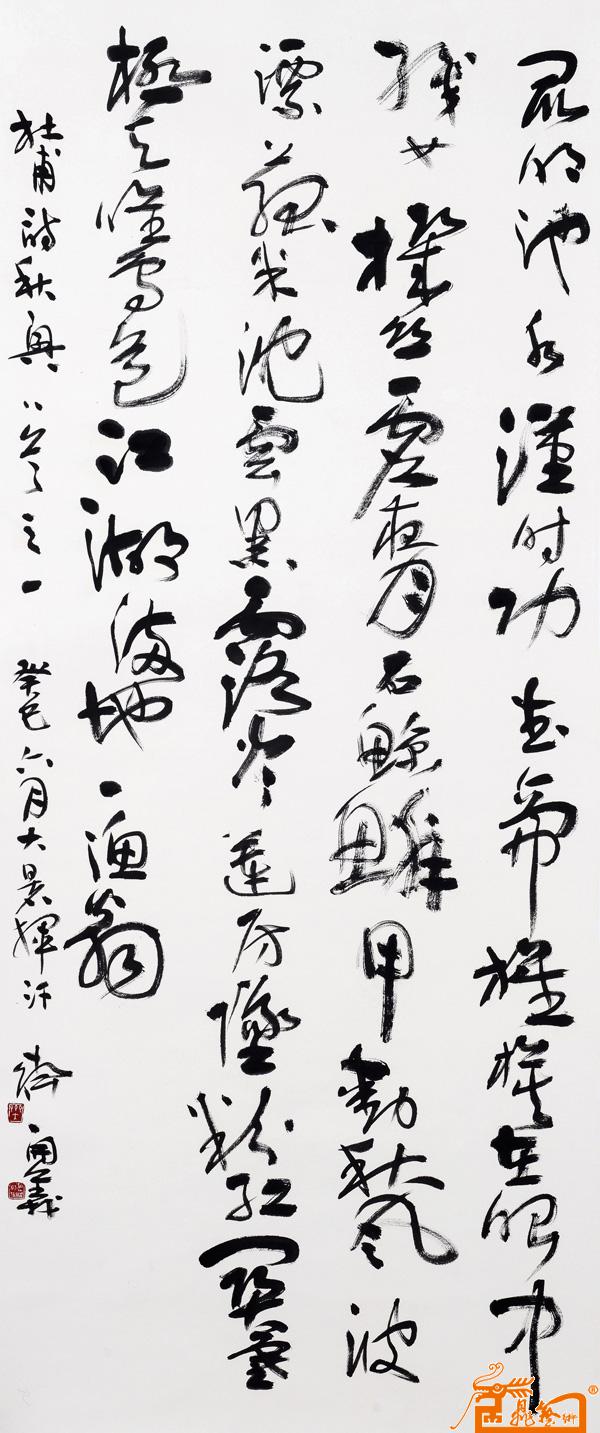 昆明池水漢时功武帝旌旗在眼中
織女機絲虛夜月石鯨鱗甲動秋風波
漂菰米沈雲黑露冷蓮房墜粉紅關塞
極天惟鳥道江湖滿地一漁翁
杜甫詩秋興八首之一 癸巳六月大暑揮汗